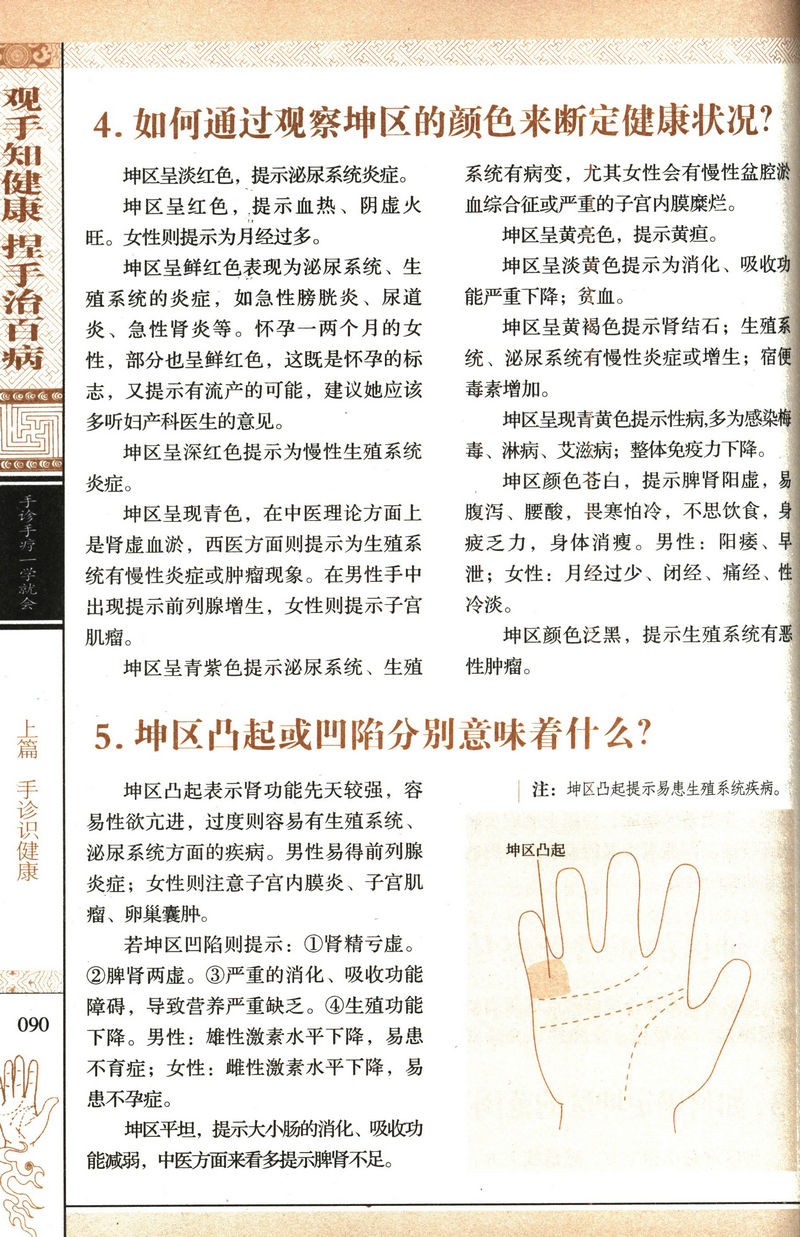 观手知健康 捏手治百病
手诊手疗一学就会
上篇 手诊识健康
090
4. 如何通过观察坤区的颜色来断定健康状况?
坤区呈淡红色，提示泌尿系统炎症。
坤区呈红色，提示血热、阴虚火
旺。女性则提示为月经过多。
坤区呈鲜红色表现为泌尿系统、生
殖系统的炎症，如急性膀胱炎、尿道
炎、急性肾炎等。怀孕一两个月的女
性，部分也呈鲜红色，这既是怀孕的标
志，又提示有流产的可能，建议她应该
多听妇产科医生的意见。
坤区呈深红色提示为慢性生殖系统
炎症。
坤区呈现青色，在中医理论方面上
是肾虚血淤，西医方面则提示为生殖系
统有慢性炎症或肿瘤现象。在男性手中
出现提示前列腺增生，女性则提示子宫
肌瘤。
坤区呈青紫色提示泌尿系统、生殖
系统有病变，尤其女性会有慢性盆腔淤
血综合征或严重的子宫内膜糜烂。
坤区呈黄亮色，提示黄疸。
坤区呈淡黄色提示为消化、吸收功
能严重下降；贫血。
坤区呈黄褐色提示肾结石；生殖系
统、泌尿系统有慢性炎症或增生；宿便
毒素增加。
坤区呈现青黄色提示性病,多为感染梅
毒、淋病、艾滋病；整体免疫力下降。
坤区颜色苍白，提示脾肾阳虚，易
腹泻、腰酸，畏寒怕冷，不思饮食，身
疲乏力，身体消瘦。男性：阳痿、早
泄；女性：月经过少、闭经、痛经、性
冷淡。
坤区颜色泛黑，提示生殖系统有恶
性肿瘤。
5. 坤区凸起或凹陷分别意味着什么?
坤区凸起表示肾功能先天较强，容
易性欲亢进，过度则容易有生殖系统、
泌尿系统方面的疾病。男性易得前列腺
炎症；女性则注意子宫内膜炎、子宫肌
瘤、卵巢囊肿。
若坤区凹陷则提示：①肾精亏虚。
②脾肾两虚。③严重的消化、吸收功能
障碍，导致营养严重缺乏。④生殖功能
下降。男性：雄性激素水平下降，易患
不育症；女性：雌性激素水平下降，易
患不孕症。
坤区平坦，提示大小肠的消化、吸收功
能减弱，中医方面来看多提示脾肾不足。
注：坤区凸起提示易患生殖系统疾病。
坤区凸起